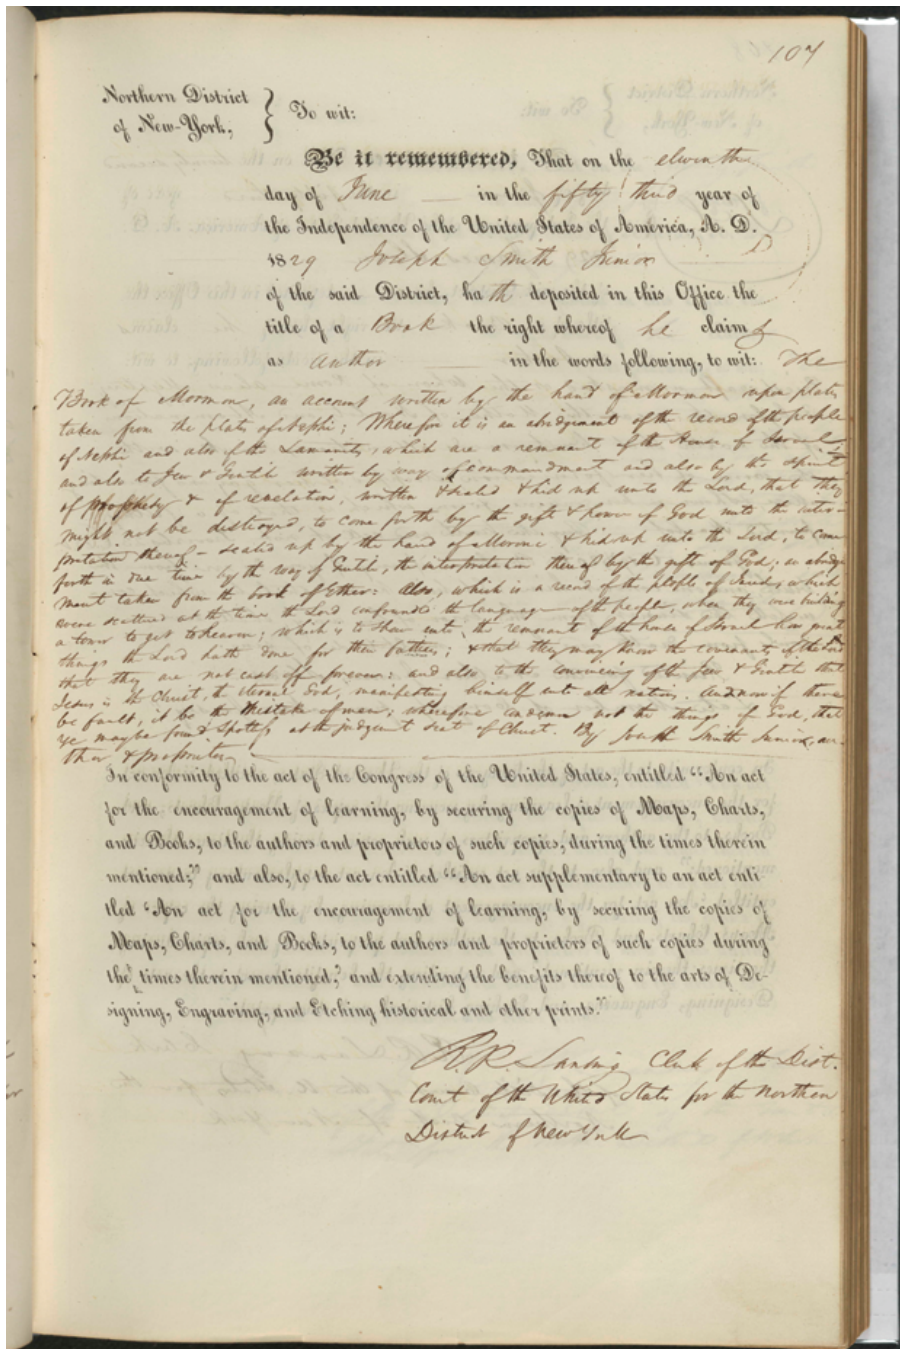 107
Northern District
of New-York,
To wit:
Be it remembered, That on the eleventh
day of June in the fifty third year of
the Independence of the United States of America, A. D.
1829 Joseph Smith Junior
of the said District, hath deposited in this Office the
title of a Book the right whereof he claims
as author in the words following, to wit: The
Book of Mormon, an account written by the hand of Mormon upon plates
taken from the plates of Nephi; Wherefore it is an abridgement of the record of the people
of Nephi and also of the Lamanites, which are a remnant of the House of Israel,
and also to Jew & Gentile written by way of commandment and also by the spirit
of prophesy & of revelation, written & sealed & hid up unto the Lord, that they
might not be destroyed, to come forth by the gift & power of God unto the inter-
pretation thereof - sealed up by the hand of Moroni & hid up unto the Lord, to come
forth in due time by the way of Gentile, the interpretation thereof by the gift of God; an abridge
ment taken from the book of Ether: Also, which is a record of the people of Jared, which
were scattered at the time the Lord confounded the language of the people, when they were building
a tower to get to heaven; which is to shew unto the remnant of the house of Israel how great
things the Lord hath done for their fathers; & that they may know the covenants of the Lord
that they are not cast off forever: and also to the convincing of the Jew & Gentile that
Jesus is the Christ, the eternal God, manifesting himself unto all nations. And now if there
be fault, it be the mistake of men; wherefore condemn not the things of God, that
ye may be found spotless at the judgment seat of Christ. By Joseph Smith Junior, au-
thor & proprietor
In conformity to the act of the Congress of the United States, entitled “An act
for the encouragement of learning, by securing the copies of Maps, Charts,
and Books, to the authors and proprietors of such copies, during the times therein
mentioned;” and also, to the act entitled “An act supplementary to an act enti-
tled ‘An act for the encouragement of learning, by securing the copies of
Maps, Charts, and Books, to the authors and proprietors of such copies during
the times therein mentioned,’ and extending the benefits thereof to the arts of De-
signing, Engraving, and Etching historical and other prints.”
R.R. Lansing Clerk of the Dist.
Court of the United States for the Northern
District of New York